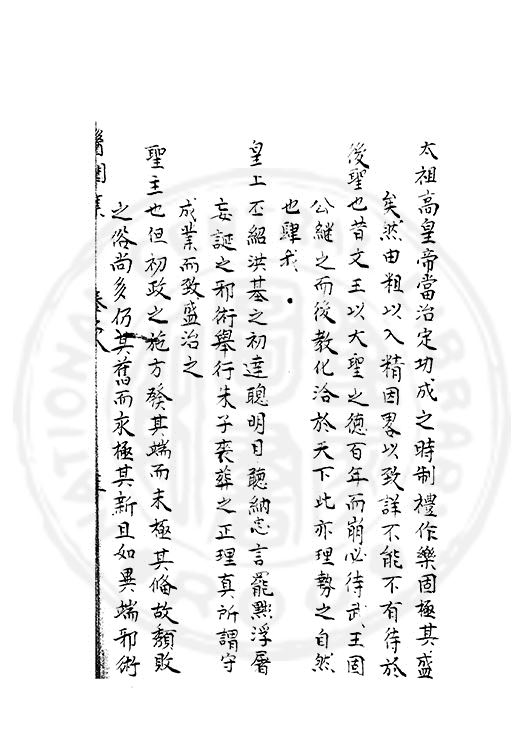 太祖高皇帝當治定功成之時制禮作樂固極其盛
矣然由粗以入精因畧以致詳不能不有待於
後聖也昔文王以大聖之德百年而崩必待武王周
公継之而後教化洽於天下此亦理勢之自然
也肆我
皇上丕紹洪基之初達聰明目聽納忠言罷黜浮屠
妄誕之邪術舉行朱子喪葬之正理真所謂守
成業而致盛治之
聖主也但初政之施方發其端而未極其俻故頽敗
之俗尚多仍其舊而求極其新且如異端邪術